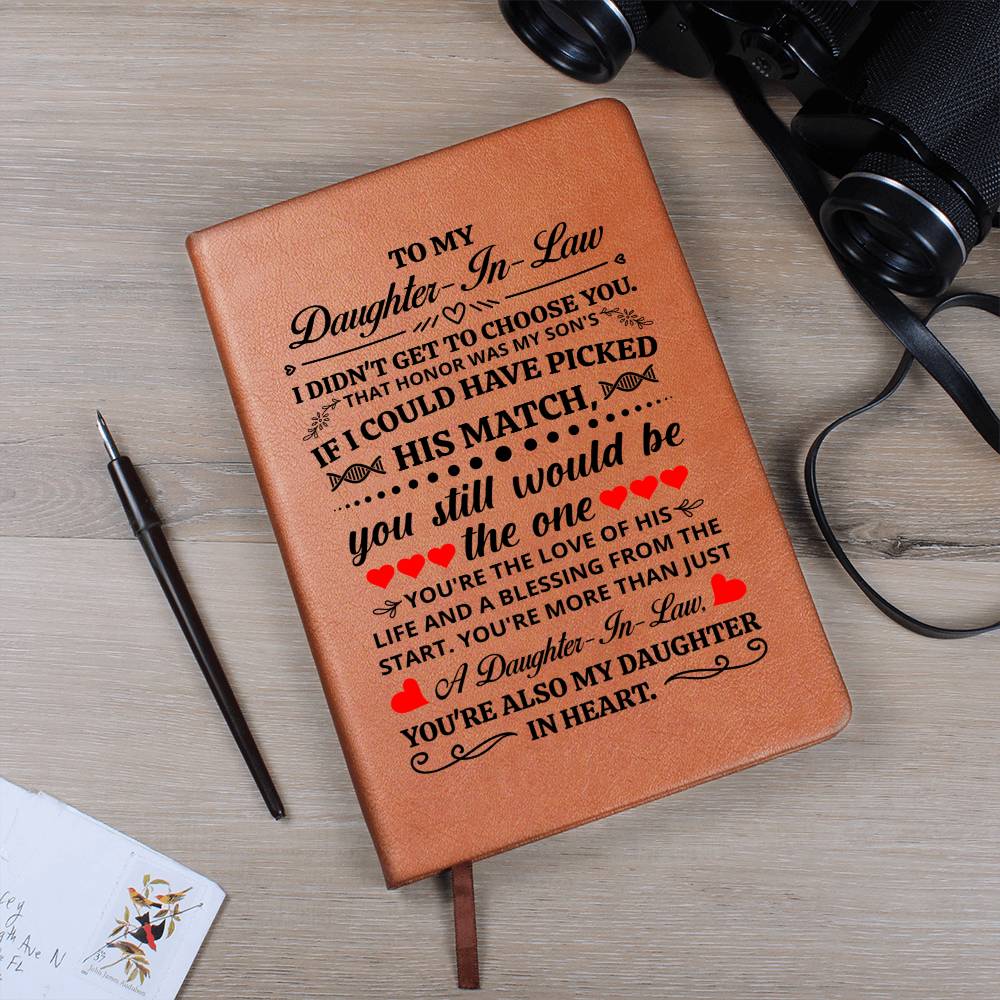 TO MY
Daughter-In-Law
I DIDN'T GET TO CHOOSE YOU.
THAT HONOR WAS MY SON'S
IF I COULD HAVE PICKED
HIS MATCH,
you still would be
the one
YOU'RE THE LOVE OF HIS
LIFE AND A BLESSING FROM THE
START. YOU'RE MORE THAN JUST
A Daughter-In-Law,
YOU'RE ALSO MY DAUGHTER
IN HEART.
Ave N
FL
37
John James Audubon